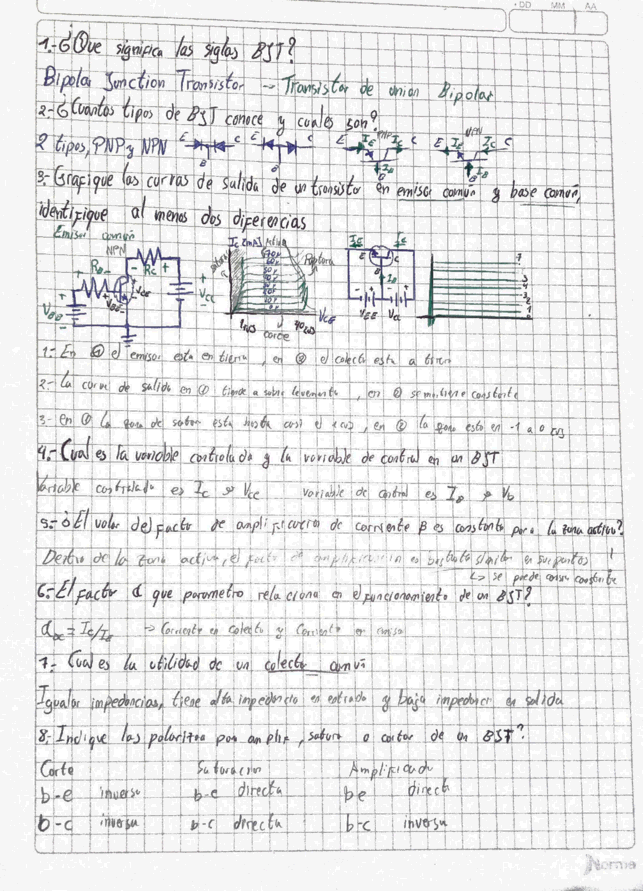 DD MM AA
1.- ¿Que significa las siglas BST?
Bipolar Junction Transistor -- Transistor de union Bipolar
2.- ¿Cuantos tipos de BST conoce y cuales son?
2 tipos, PNP y NPN E C B E C B E IE PNP IC C IB B E IE NPN IC C IB B
3.- Grafique las curvas de salida de un transistor en emisor común y base común,
identifique al menos dos diferencias
Emisor común
NPN
RB RC VBB VBE VCE VCC
IC [mA] Activa Ruptura VCE corte
IE IC E C B IB VEE VCC
1.- En ① el emisor esta en tierra, en ② el colector esta a tierra
2.- la curva de salida en ① tiende a subir levemente, en ② se mantiene constante
3.- en ① la zona de satur esta hasta casi el eje, en ② la zona esta en -1 a 0
4.- Cual es la variable controlada y la variable de control en un BST
Variable controlada es IC y VCE variable de control es IB y Vb
5.- ¿El valor del factor de amplificacion de corriente β es constante para la zona activa?
Dentro de la zona activa, el factor de amplificacion es bastante similar en sus puntos
↳ se puede constante
6.- El factor α que parametro relaciona en el funcionamiento de un BST?
αDC = IC/IE → Corriente en colector y Corriente en emisor
7.- Cual es la utilidad de un colector común
Igualar impedancias, tiene alta impedancia en entrada y baja impedancia en salida
8.- Indique las polariza para amplif, satura o cortar de un BST?
Corte Saturacion Amplificado
b-e inversa b-e directa be directa
b-c inversa b-c directa b-c inversa
Norma